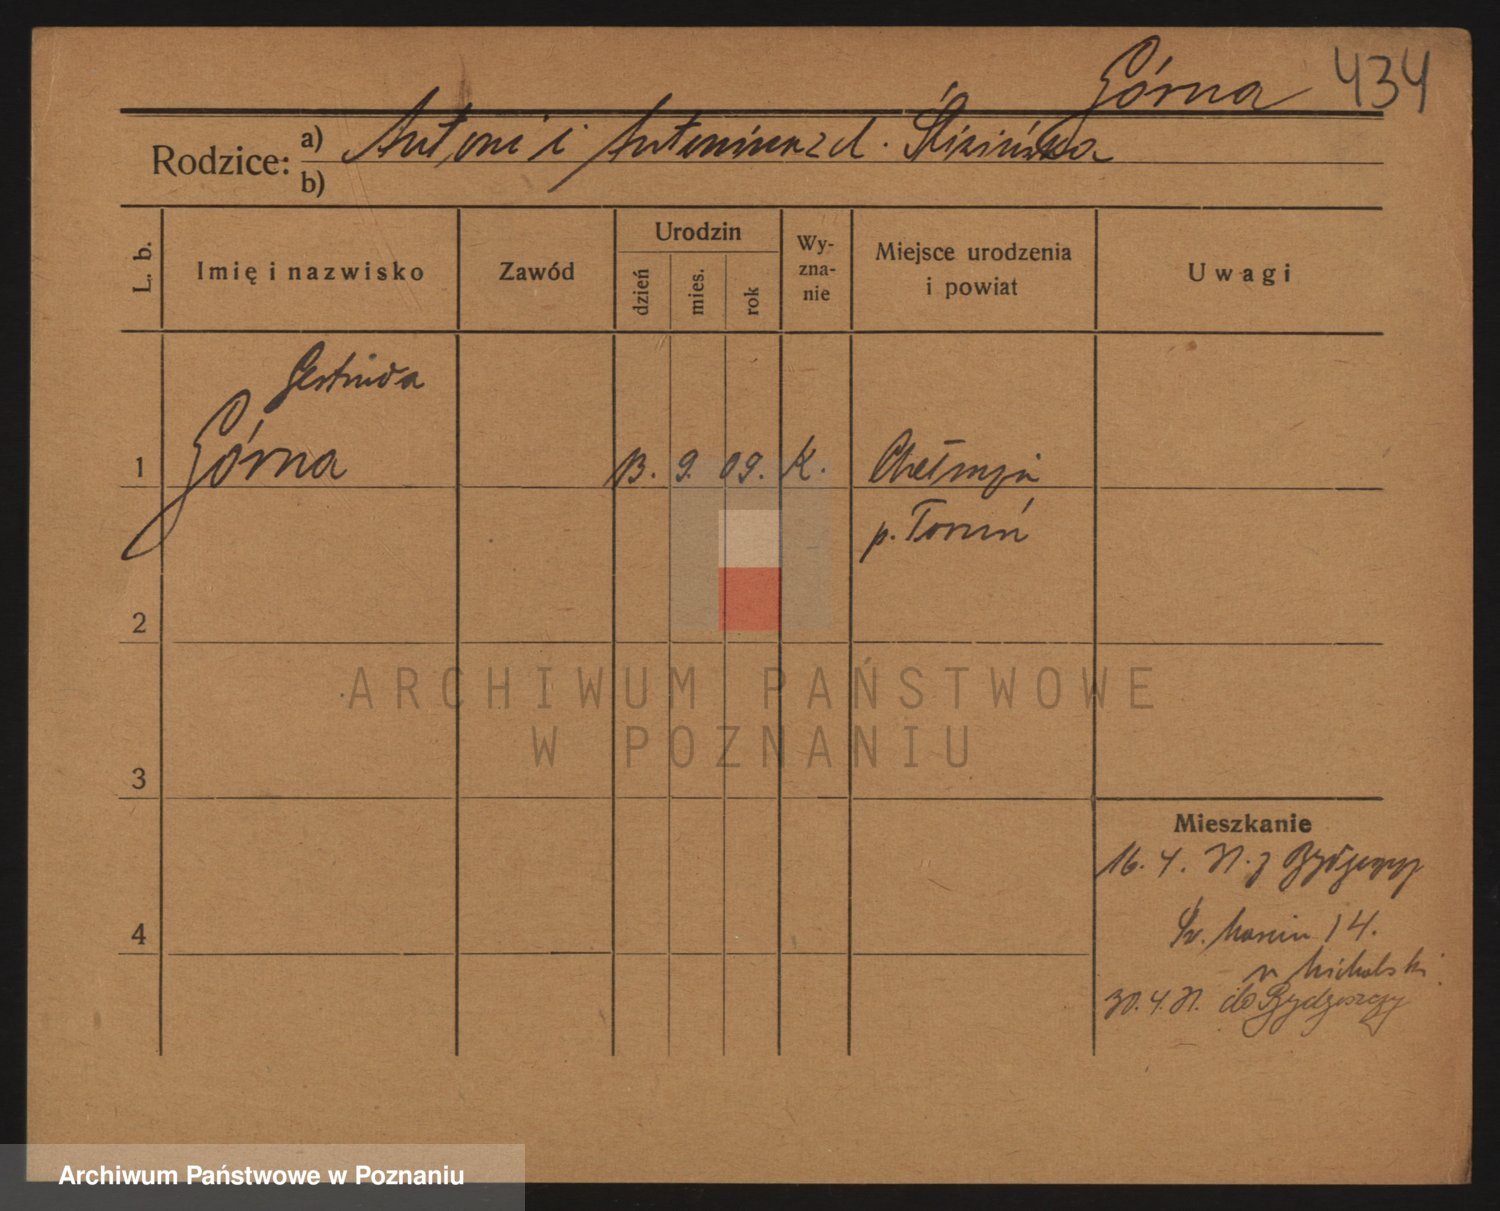 Górna 434
Rodzice: a) Antoni i Antonina zd.
b)
L. b.
Imię i nazwisko
Zawód
Urodzin
dzień
mies.
rok
Wy-
zna-
nie
Miejsce urodzenia
i powiat
Uwagi
Gertruda
1 Górna 13. 9. 09. K. Chełmża
p. Toruń
2
ARCHIWUM PAŃSTWOWE
W POZNANIU
3
Mieszkanie
16. 4. z Bydgoszczy
4 Św. Marcin 14.
Michalski
30. 4. do Bydgoszczy
Archiwum Państwowe w Poznaniu